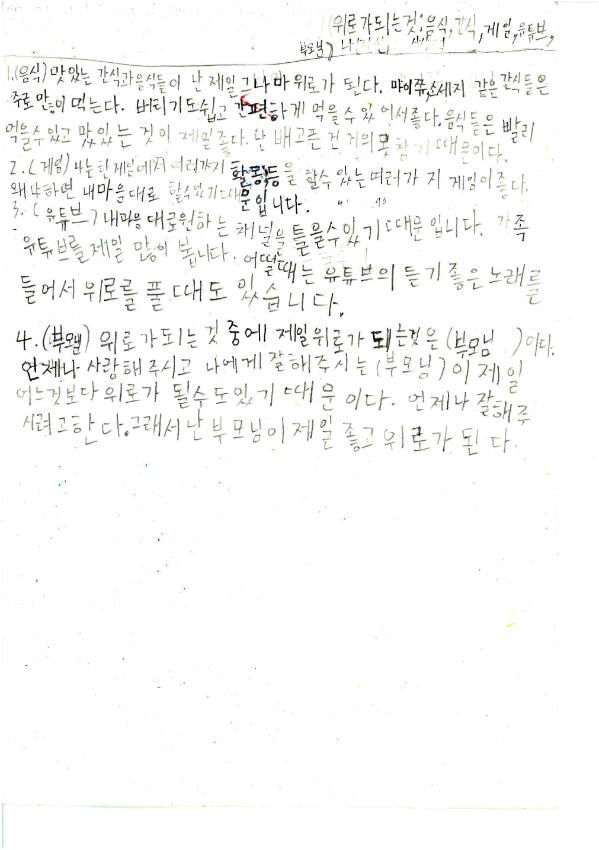 (위로가되는것:음식,간식,게임,유튜브,
부모님)
1.(음식) 맛있는 간식과음식들이 난 제일 그나마 위로가 된다. 마이쮸,소세지 같은 간식들은
주로 많이 먹는다. 버리기도쉽고 간편하게 먹을수있 어서좋다. 음식들은 빨리
먹을수있고 맛있는 것이 제일좋다. 난 배고픈 건 거의못참기때문이다.
2.(게임) 나는한게임에서 여러가지 활동등을 할수있는여러가 지 게임이좋다.
왜냐하면 내마음대로 할수있기때문입니다.
3. (유튜브) 내마음대로원하는 채널을틀을수있기때문 입니다. 가족
유튜브를제일 많이 봅니다. 어떨때는 유튜브의 듣기좋은노래를
들어서 위로를 풀 때도 있습니다.
4.(부모님) 위로가되는것 중에 제일위로가 되는것은(부모님 )이다.
언제나 사랑해주시고 나에게 잘해주시는(부모님)이 제일
어느것보다 위로가 될수도있기 때문 이다. 언제나 잘해주
시려고한다.그래서난 부모님이제일 좋고 위로가 된 다.